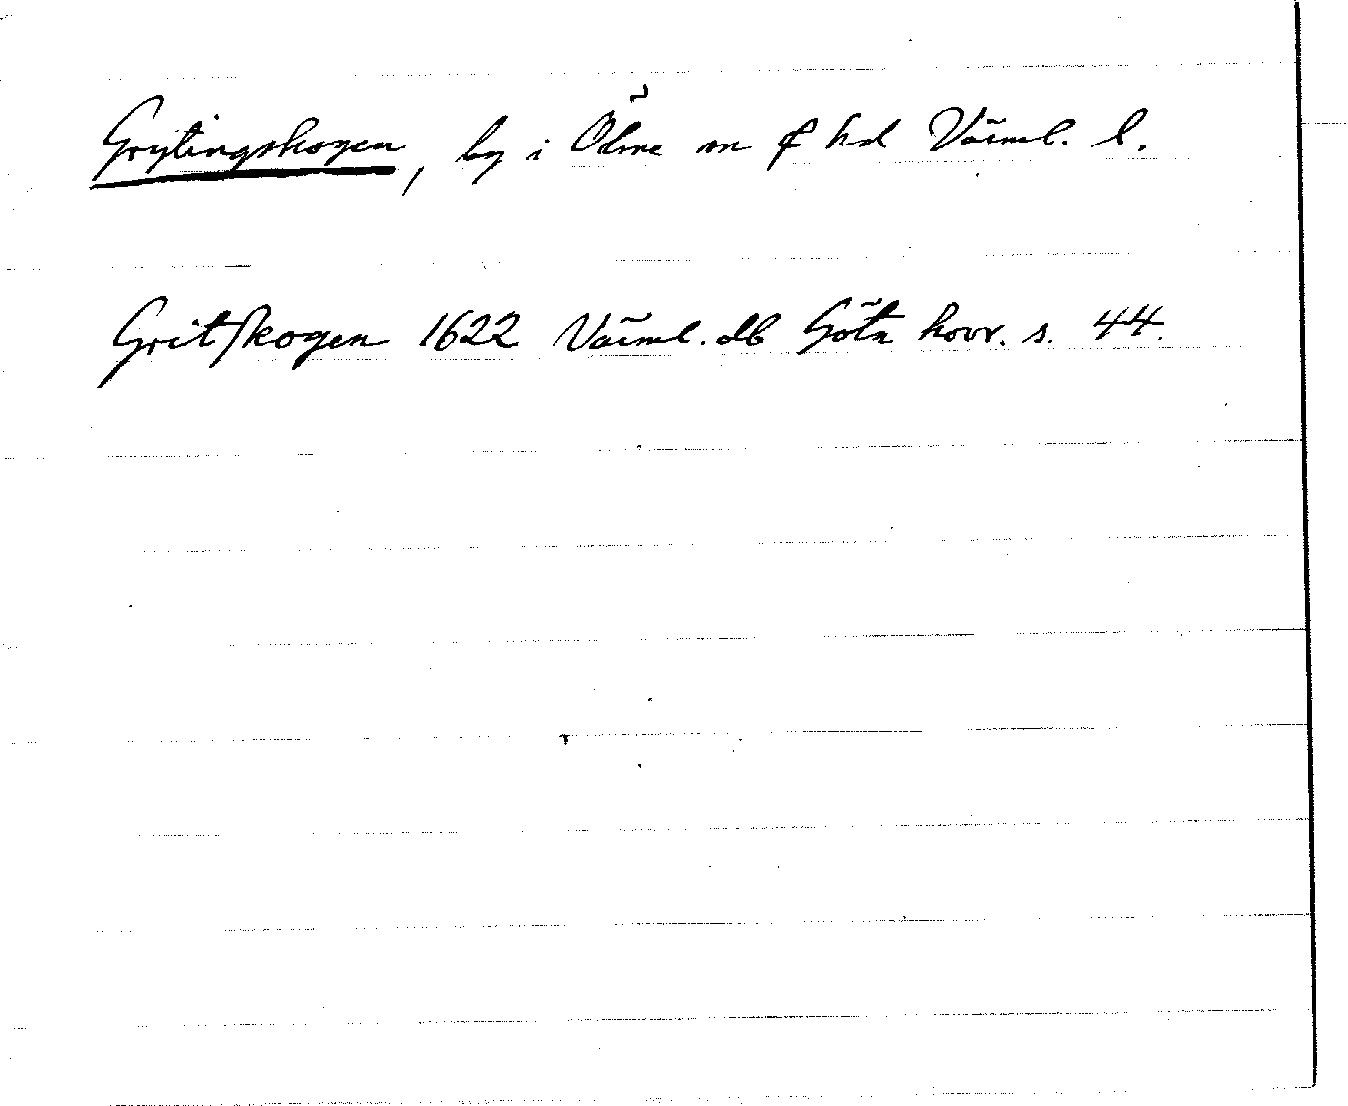 Grytingskogen, by i Ölme sn o hd Värml. l.
Gritskogen 1622 Värml. db Göta hovr. s. 44.